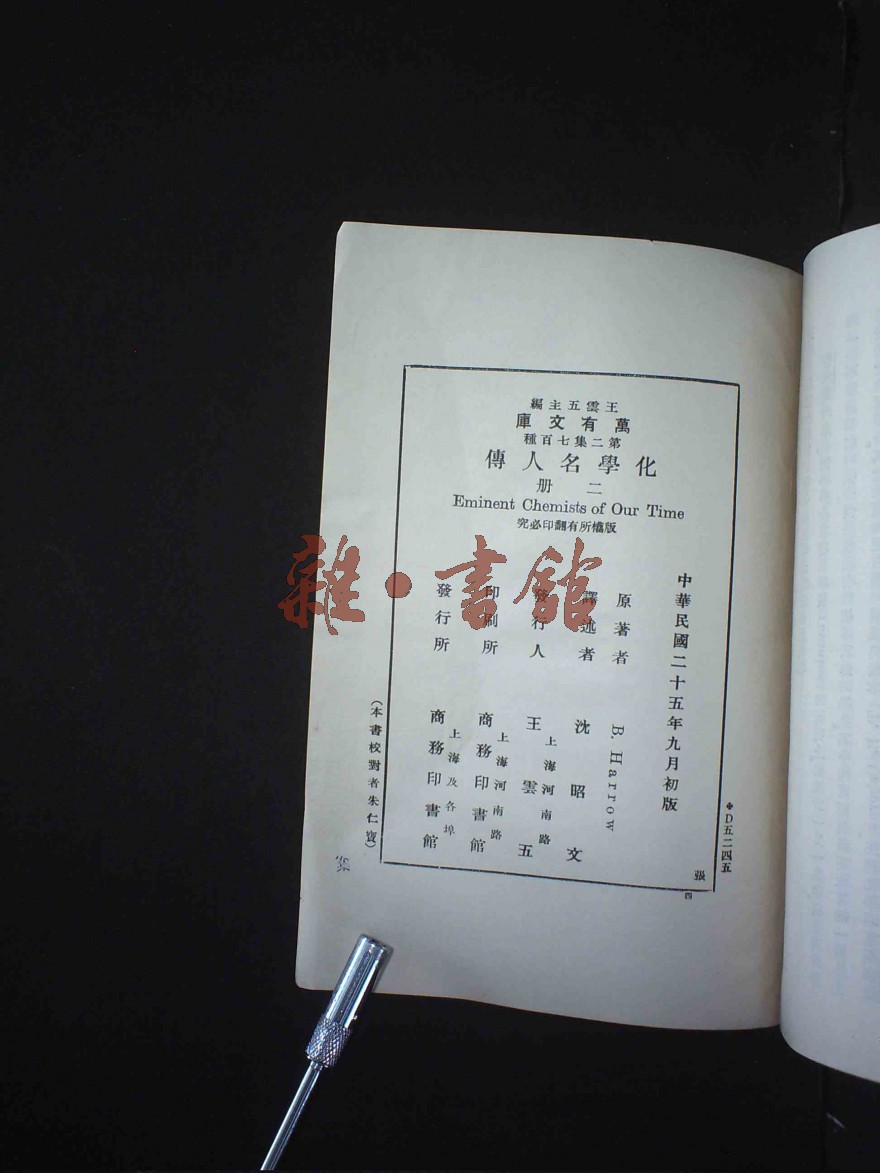 王雲五主編
萬有文庫
第二集七百種
化學名人傳
二册
Eminent Chemists of Our Time
版權所有翻印必究
中華民國二十五年九月初版
原著者 B. Harrow
譯述者 沈昭文
發行人 王雲五
上海河南路
印刷所 商務印書館
上海河南路
發行所 商務印書館
上海及各埠
(本書校對者朱仁寶)
❖D五二四五
張
四
雜·書館